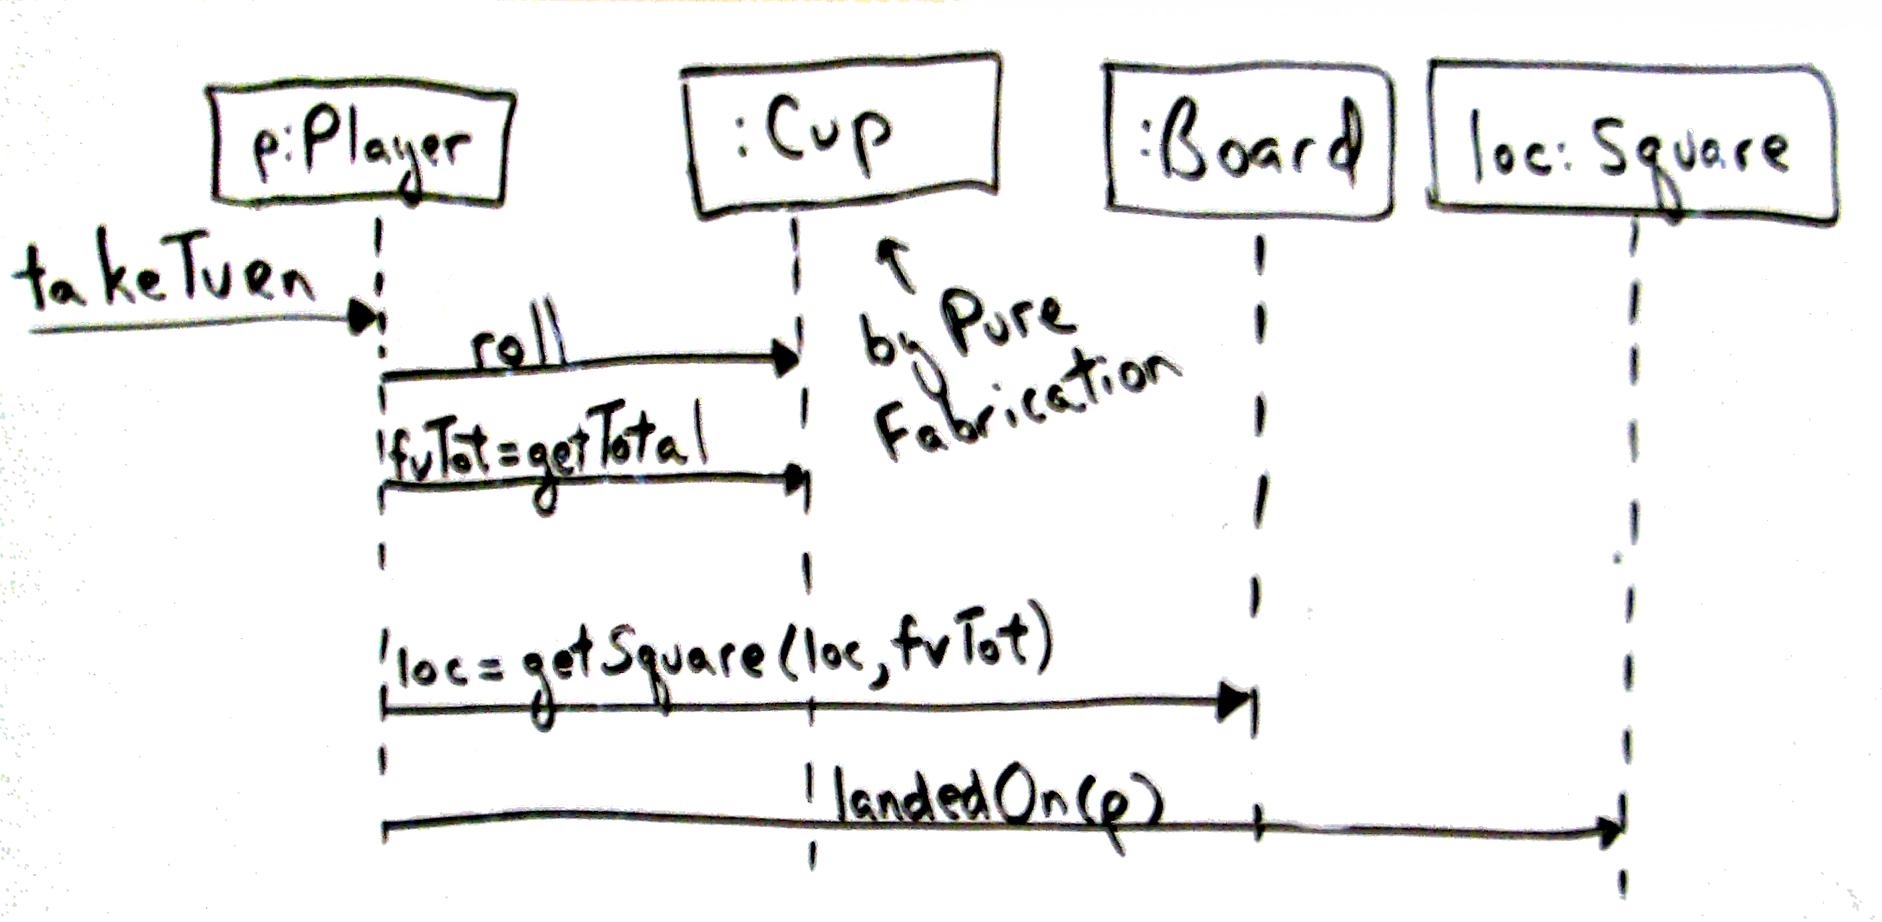 p:Player
:Cup
:Board
loc: Square
takeTurn
roll
by Pure
Fabrication
fvTot=getTotal
loc=getSquare(loc,fvTot)
landedOn(p)